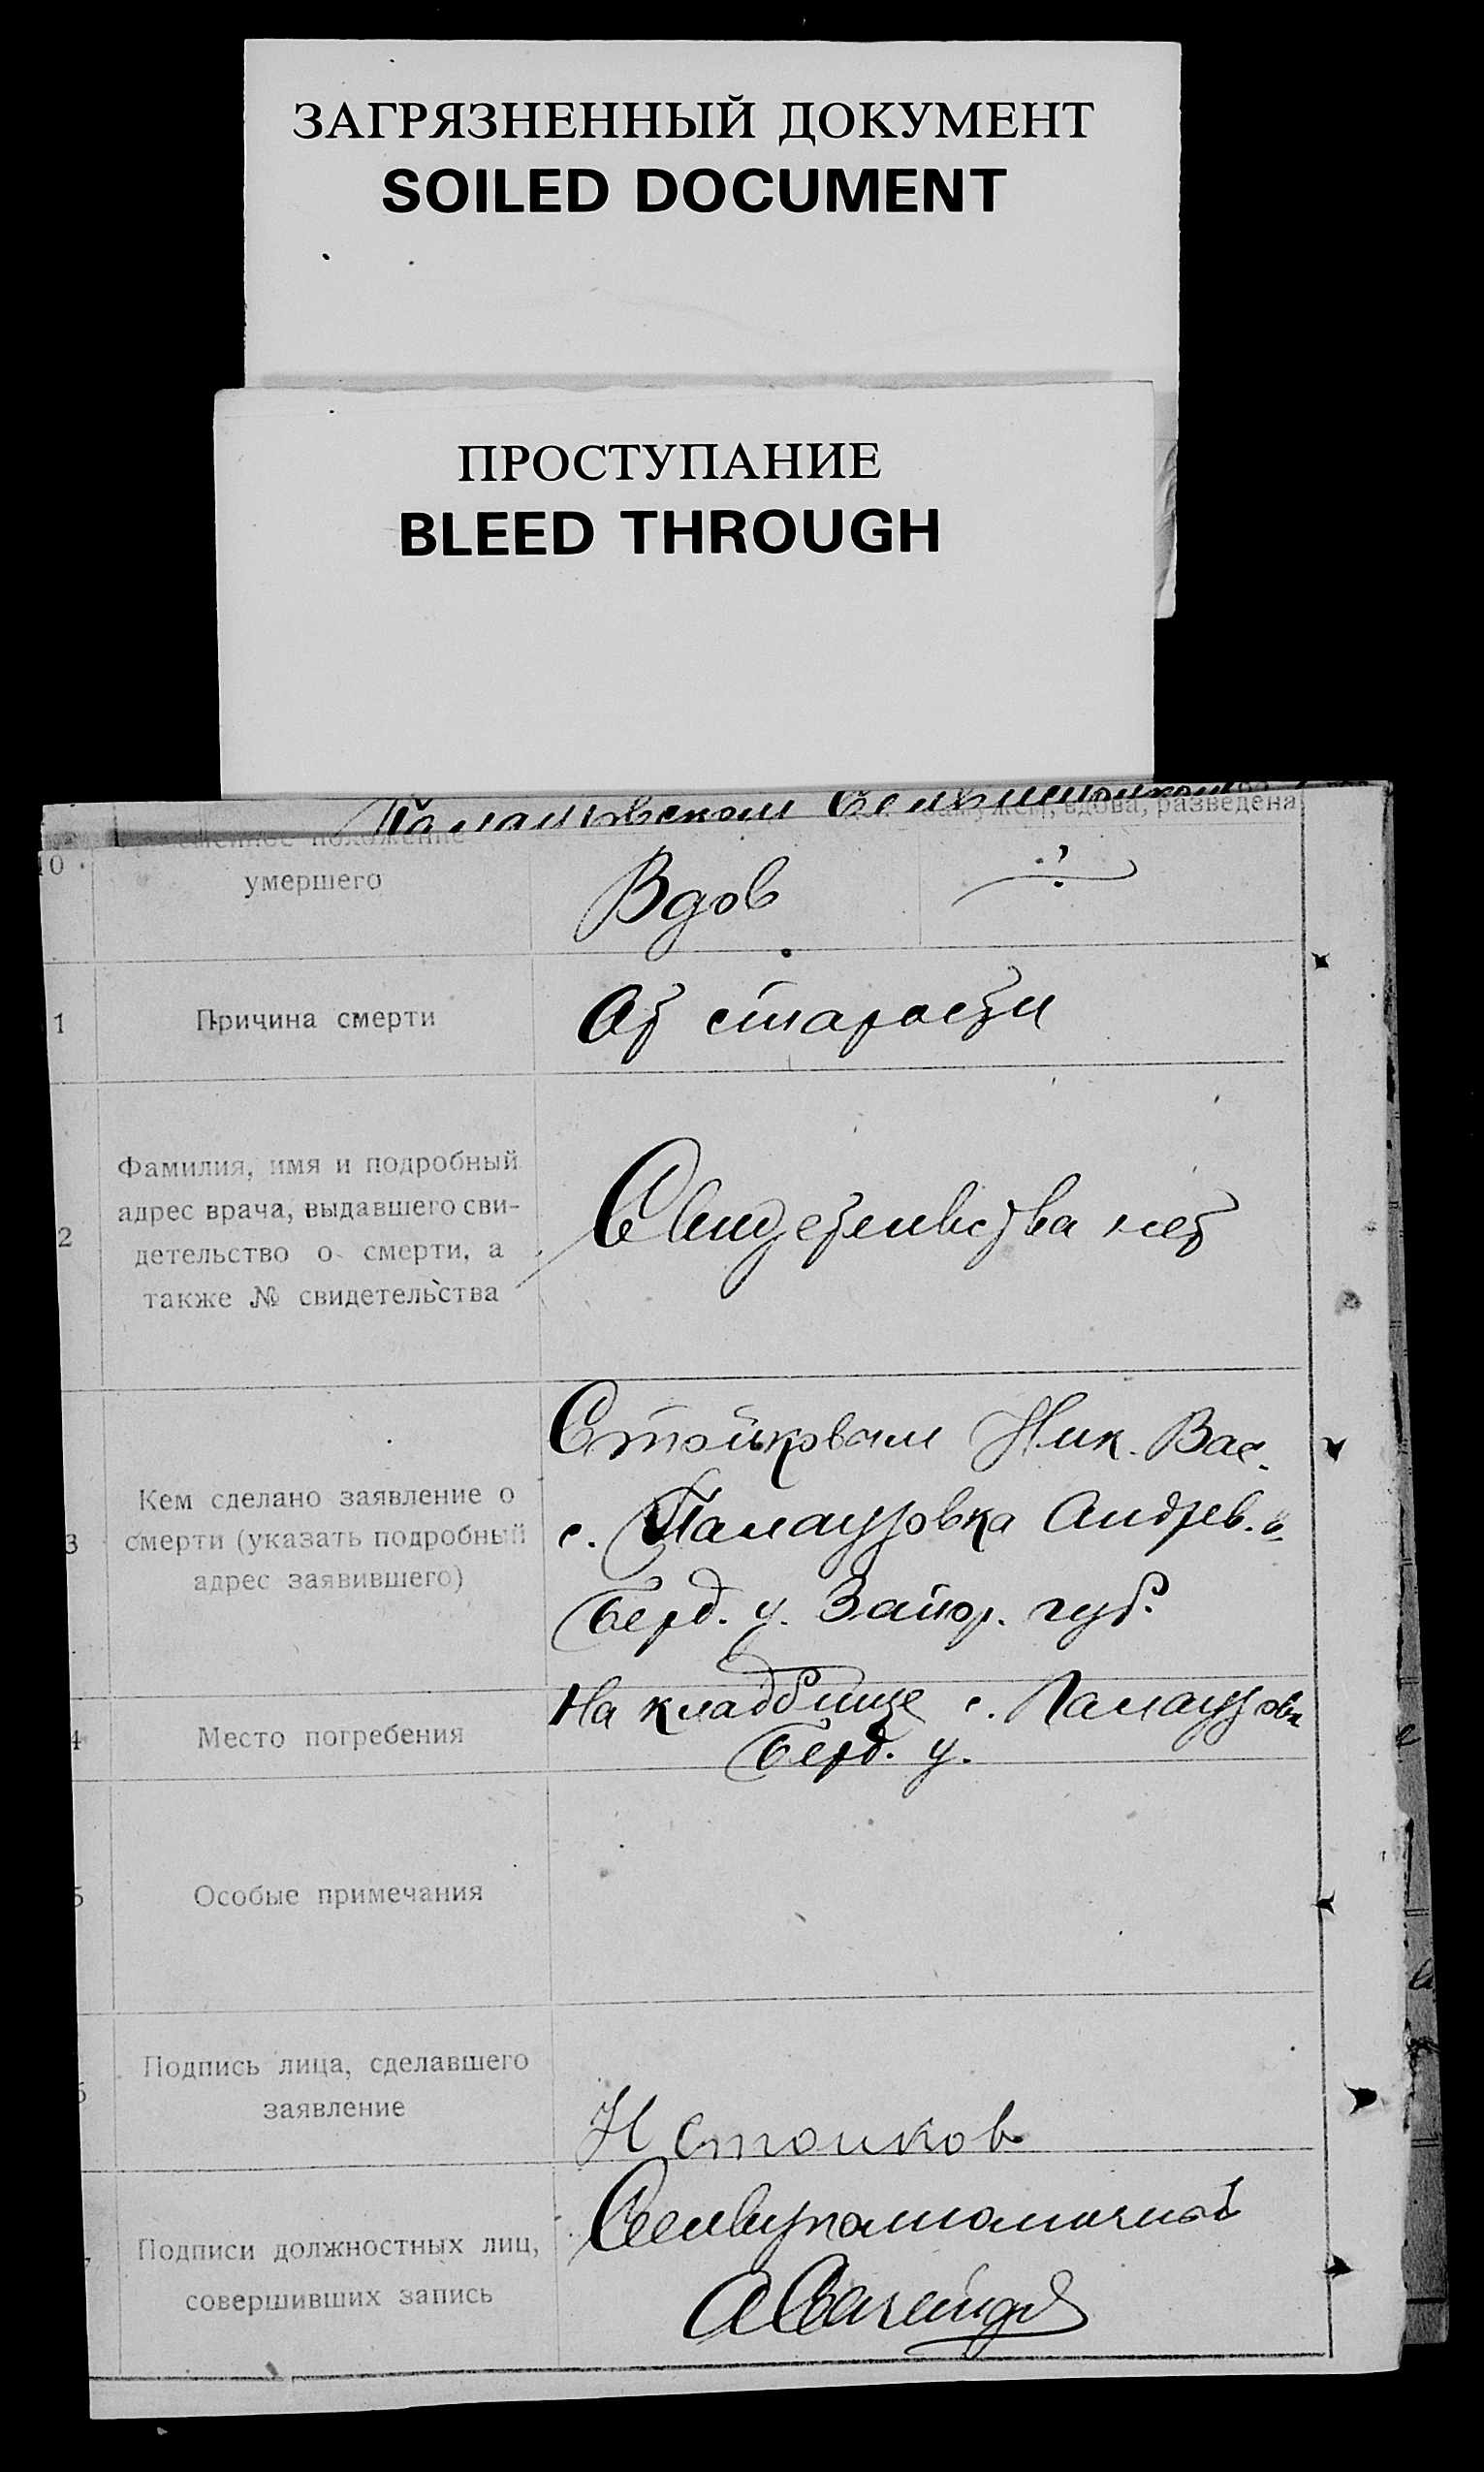 ЗАГРЯЗНЕННЫЙ ДОКУМЕНТ
SOILED DOCUMENT
ПРОСТУПАНИЕ
BLEED THROUGH
вдова, разведена
10 положение
умершего
Вдов
1 Причина смерти
От старости
2
Фамилия, имя и подробный
адрес врача, выдавшего сви-
детельство о смерти, а
также № свидетельства
Свидетельства нет
3
Кем сделано заявление о
смерти (указать подробный
адрес заявившего)
Стойковым Ник. Вас.
с. Палаузовка Андрев. в.
Берд. у. Запор. губ.
4 Место погребения
На кладбище с. Палаузовк
Берд. у.
5 Особые примечания
Подпись лица, сделавшего
заявление
Н Стоиков
Подписи должностных лиц,
совершивших запись